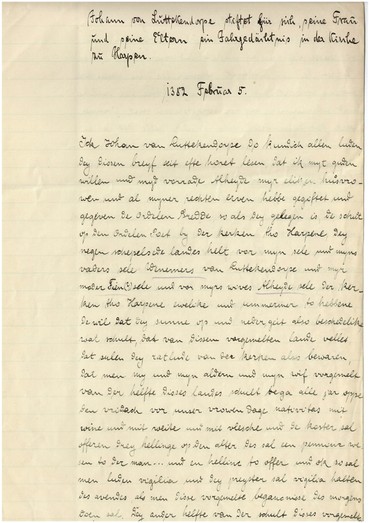 Johann von Lüttekendorpe stiftet für sich, seine Frau
und seine Eltern ein Jahrgedächtnis in der Kirche
zu Harpen.
1382 Februar 5.
Ick Johan van Luttekendorpe do kundich allen luden
dey dissen breyf seit efte horet lesen dat ik myt guden
willen und myd vorrade Alheyde myr eliken husvro-
wen unt al myner rechten erven hebbe gegiftet und
gegeven de Ordelen Bredde so als dey gelegen is De schelt
op den Ordelen Poet by der kerken tho Harpene dey
negen schepelsede landes helt vor myn sele unt myns
vaders sele Wenemers van Luttekendorpe und myr
moder sele und vor myns wives Alheyde sele der ker-
ken tho Harpene ewelike und ummermer to hebbene
de wil dat dey sunne op und neder geit also beschedelike
wat schult, dat van dissen vorgemelten lande vellet
dat sulen dey ratlude van der kerken also bewaren
dat men my und myn aldern und myn wif vorgemelt
van der helfte disses landes schult bega alle jar oppe
den vridach vor unser vrowen dage nativitas mit
wine und mit weite und mit vlesche und de koster sal
offeren drey hellinge op den alter de sal een
sen to der man... und en hellinc to offer und ok so sal
men luden vigilia und dey preyster sal vigilia halten
des avendes als men disse vorgemelte begancnisse des morgens
doen sal. Dey ander helfte van der schult disses vorgemelt